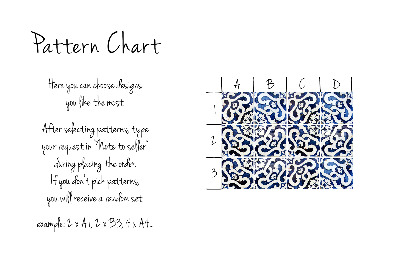 Pattern Chart
Here you can choose designs
you like the most.
After selecting patterns, type
your request in "Note to seller"
during placing the order.
If you don't pick patterns,
you will receive a random set.
example: 2 x A1, 2 x B3, 4 x A4...
A B C D
1
2
3